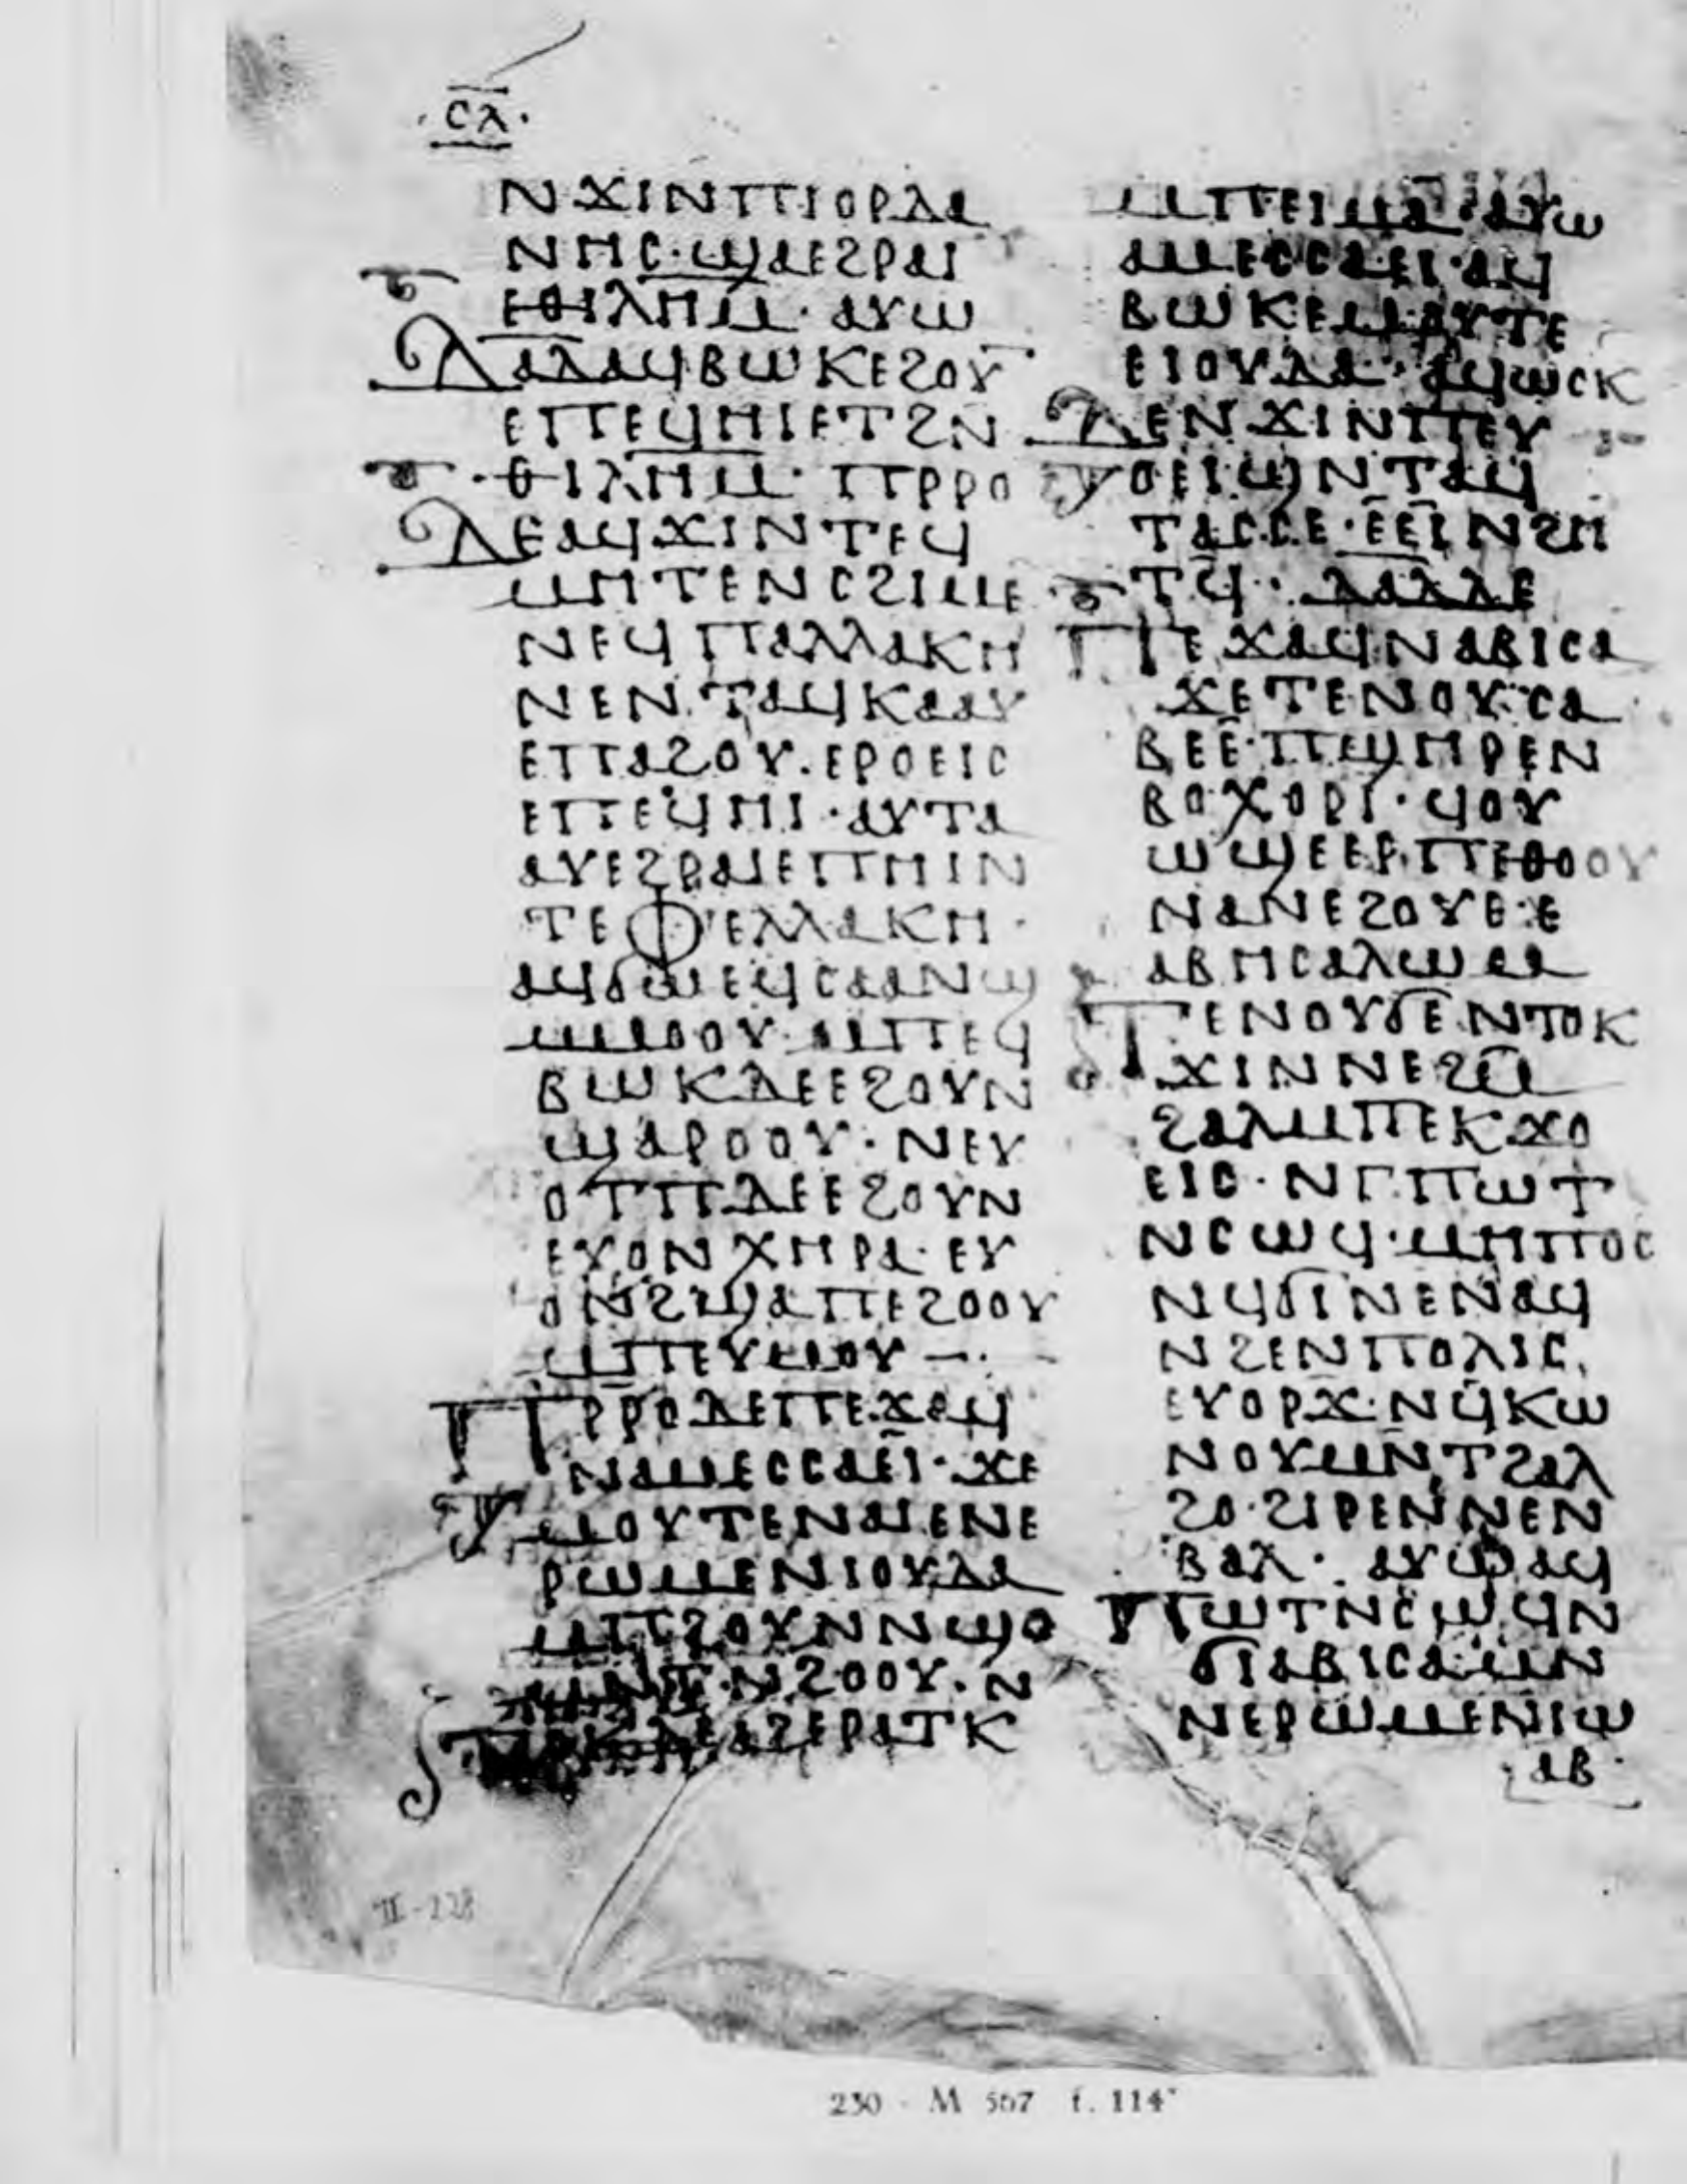 ⲥⲗ
ϫⲓⲛⲡⲓⲟⲣⲇⲁ
ⲛⲏⲥ·ϣⲁⲉϩⲣⲁⲓ
ⲉⲑⲓⲗⲏⲙ· ⲁⲩⲱ
ⲇⲁⲇⲁϥⲃⲱⲕⲉϩⲟⲩ
ⲉⲡⲉϥⲏⲓⲉⲧϩⲛ
ⲑⲓⲗⲏⲙ· ⲡⲣⲣⲟ
ⲇⲉⲁϥϫⲓⲛⲧⲉϥ
ⲙⲏⲧⲉⲛⲥϩⲓⲙⲉ
ⲛⲉϥⲡⲁⲗⲗⲁⲕⲏ
ⲛⲉⲛⲧⲁϥⲕⲁⲁⲩ
ⲉⲡⲁϩⲟⲩ·ⲉⲣⲟⲉⲓⲥ
ⲉⲡⲉϥⲏⲓ·ⲁⲩⲧⲁ
ⲁⲩⲉϩⲣⲁⲓⲉⲡⲏⲓⲛ
ⲧⲉⲫⲉⲗⲗⲁⲕⲏ·
ⲁϥϭⲱⲉϥⲥⲁⲁⲛϣ
ⲙⲙⲟⲟⲩ·ⲙⲡⲉϥ
ⲃⲱⲕⲇⲉⲉϩⲟⲩⲛ
ϣⲁⲣⲟⲟⲩ·ⲛⲉⲩ
ⲟⲧⲡⲇⲉⲉϩⲟⲩⲛ
ⲉⲩⲟⲛⲭⲏⲣⲁ·ⲉⲩ
ⲟⲛϩϣⲁⲡⲉϩⲟⲟⲩ
ⲙⲡⲉⲩⲙⲟⲩ —·
ⲡⲣⲣⲟⲇⲉⲡⲉϫⲁϥ
ⲛⲁⲙⲉⲥⲥⲁⲉⲓ·ϫⲉ
ⲙⲟⲩⲧⲉⲛⲁⲓⲉⲛⲉ
ⲣⲱⲙⲉⲛⲓⲟⲩⲇⲁ
ⲙⲡϩⲟⲩⲛⲛϣⲟ
ⲛϩⲟⲟⲩ·ⲛ
ⲁϩⲉⲣⲁⲧⲕ
ⲙⲡⲉⲓⲙⲁ·ⲁⲩⲱ
ⲁⲙⲉⲥⲥⲁⲉⲓ·ⲁϥ
ⲃⲱⲕⲉⲙⲟⲩⲧⲉ
ⲉⲓⲟⲩⲇⲁ·ⲁϥⲱⲥⲕ
ⲇⲉⲛϫⲓⲛⲡⲉⲩ
ⲟⲉⲓϣⲛⲧⲁϥ
ⲧⲁⲥⲥⲉ·ⲉⲉⲓⲛϩⲏ
ⲧϥ· ⲇⲁⲇⲇⲉ
ⲡⲉϫⲁϥⲛⲁⲃⲓⲥⲁ
ϫⲉⲧⲉⲛⲟⲩ·ⲥⲁ
ⲃⲉⲉ·ⲡϣⲏⲣⲉⲛ
ⲃⲟⲭⲟⲣⲓ·ϥⲟⲩ
ⲱϣⲉⲉⲣⲡⲉⲑⲟⲟⲩ
ⲛⲁⲛⲉϩⲟⲩⲉ·ⲉ
ⲁⲃⲏⲥⲁⲗⲱⲙ
ⲧⲉⲛⲟⲩϭⲉⲛⲧⲟⲕ
ϫⲓⲛⲛⲉϩⲙ
ϩⲁⲗⲙⲡⲉⲕϫⲟ
ⲉⲓⲥ·ⲛⲅⲡⲱⲧ
ⲛⲥⲱϥ·ⲙⲏⲡⲟⲥ
ⲛϥϭⲓⲛⲉⲛⲁϥ
ⲛϩⲉⲛⲡⲟⲗⲓⲥ
ⲉⲩⲟⲣϫ·ⲛϥⲕⲱ
ⲛⲟⲩⲙⲛⲧϩⲁⲗ
ϩⲟ·ϩⲓⲣⲉⲛⲛⲉⲛ
ⲃⲁⲗ· ⲁⲩⲱⲁϥ
ⲡⲱⲧⲛⲥⲱϥⲛ
ϭⲓⲁⲃⲓⲥⲁ·ⲙⲛ
ⲛⲉⲣⲱⲙⲉⲛⲓⲱ
ⲁⲃ
II-228
230 - M 567 f. 114ᵛ